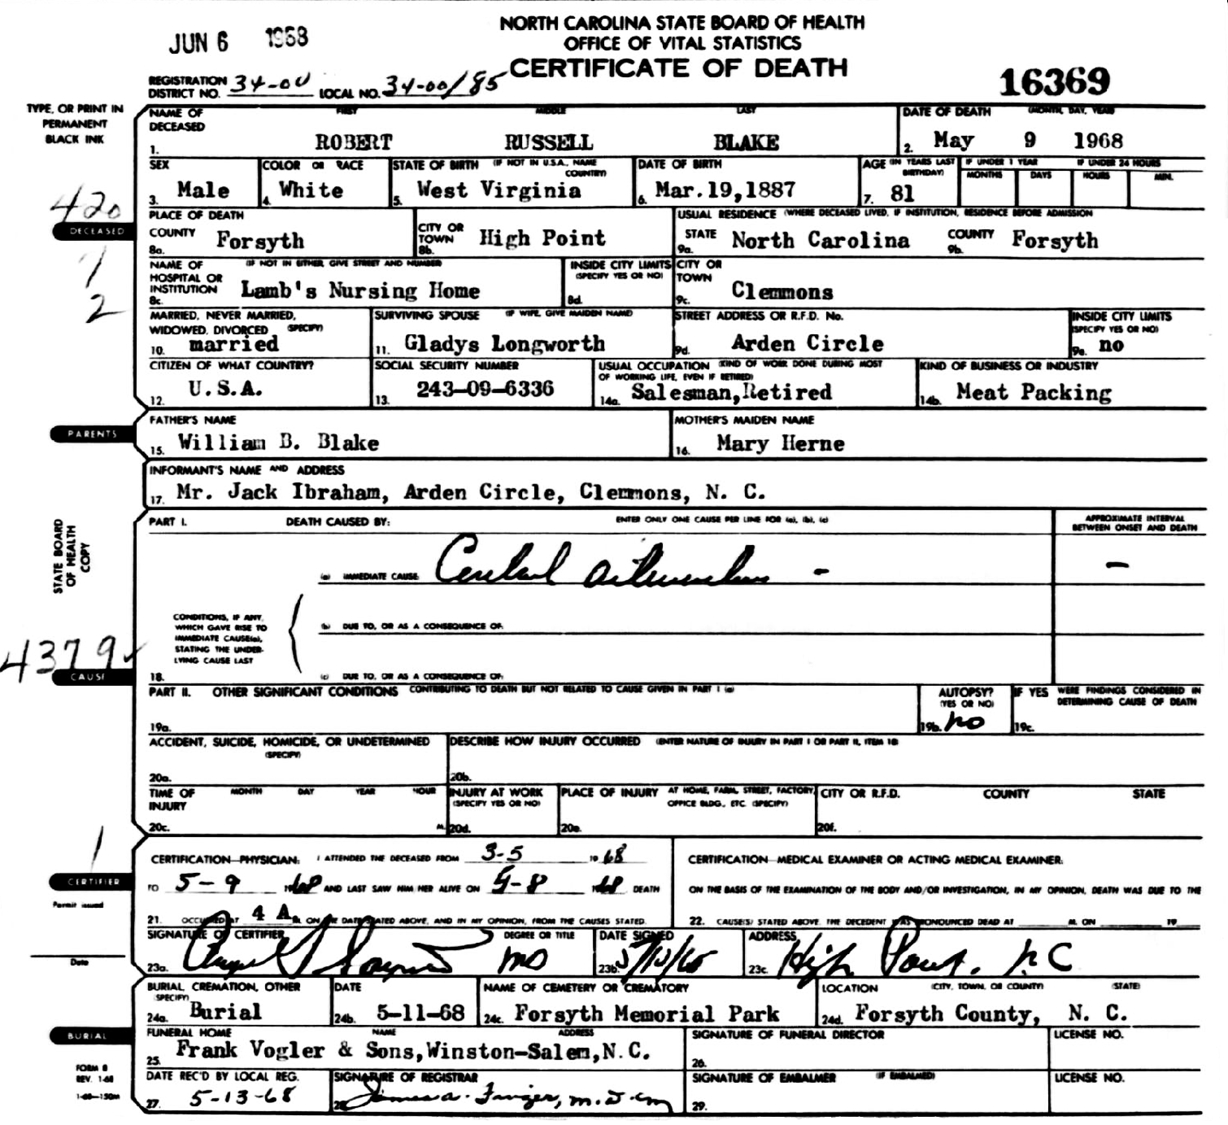 NORTH CAROLINA STATE BOARD OF HEALTH
OFFICE OF VITAL STATISTICS
CERTIFICATE OF DEATH
JUN 6 1968
REGISTRATION DISTRICT NO. 34-00 LOCAL NO. 34-00/85
16369
TYPE, OR PRINT IN PERMANENT BLACK INK
NAME OF DECEASED FIRST MIDDLE LAST DATE OF DEATH (MONTH, DAY, YEAR)
1. ROBERT RUSSELL BLAKE 2. May 9 1968
SEX COLOR OR RACE STATE OF BIRTH (IF NOT IN U.S.A., NAME COUNTRY) DATE OF BIRTH AGE (IN YEARS LAST BIRTHDAY) IF UNDER 1 YEAR IF UNDER 24 HOURS
MONTHS DAYS HOURS MIN.
3. Male 4. White 5. West Virginia 6. Mar.19,1887 7. 81
420
DECEASED
1
2
PLACE OF DEATH USUAL RESIDENCE (WHERE DECEASED LIVED. IF INSTITUTION, RESIDENCE BEFORE ADMISSION
COUNTY 8a. Forsyth CITY OR TOWN 8b. High Point STATE 9a. North Carolina COUNTY 9b. Forsyth
NAME OF HOSPITAL OR INSTITUTION (IF NOT IN EITHER, GIVE STREET AND NUMBER) INSIDE CITY LIMITS (SPECIFY YES OR NO) CITY OR TOWN
8c. Lamb's Nursing Home 8d. 9c. Clemmons
MARRIED, NEVER MARRIED, WIDOWED, DIVORCED (SPECIFY) SURVIVING SPOUSE (IF WIFE, GIVE MAIDEN NAME) STREET ADDRESS OR R.F.D. No. INSIDE CITY LIMITS (SPECIFY YES OR NO)
10. married 11. Gladys Longworth 9d. Arden Circle 9e. no
CITIZEN OF WHAT COUNTRY? SOCIAL SECURITY NUMBER USUAL OCCUPATION (KIND OF WORK DONE DURING MOST OF WORKING LIFE, EVEN IF RETIRED) KIND OF BUSINESS OR INDUSTRY
12. U.S.A. 13. 243-09-6336 14a. Salesman,Retired 14b. Meat Packing
PARENTS
FATHER'S NAME MOTHER'S MAIDEN NAME
15. William B. Blake 16. Mary Herne
INFORMANT'S NAME AND ADDRESS
17. Mr. Jack Ibraham, Arden Circle, Clemmons, N. C.
STATE BOARD OF HEALTH COPY
PART I. DEATH CAUSED BY: ENTER ONLY ONE CAUSE PER LINE FOR (a), (b), (c) APPROXIMATE INTERVAL BETWEEN ONSET AND DEATH
(a) IMMEDIATE CAUSE Cerebral - -
CONDITIONS, IF ANY, WHICH GAVE RISE TO IMMEDIATE CAUSE(a), STATING THE UNDERLYING CAUSE LAST
(b) DUE TO, OR AS A CONSEQUENCE OF:
4379
CAUSE
18. (c) DUE TO, OR AS A CONSEQUENCE OF:
PART II. OTHER SIGNIFICANT CONDITIONS CONTRIBUTING TO DEATH BUT NOT RELATED TO CAUSE GIVEN IN PART I (a) AUTOPSY? (YES OR NO) IF YES WERE FINDINGS CONSIDERED IN DETERMINING CAUSE OF DEATH
19a. 19b. no 19c.
ACCIDENT, SUICIDE, HOMICIDE, OR UNDETERMINED (SPECIFY) DESCRIBE HOW INJURY OCCURRED (ENTER NATURE OF INJURY IN PART I OR PART II, ITEM 18)
20a. 20b.
TIME OF INJURY MONTH DAY YEAR HOUR INJURY AT WORK (SPECIFY YES OR NO) PLACE OF INJURY AT HOME, FARM, STREET, FACTORY, OFFICE BLDG., ETC. (SPECIFY) CITY OR R.F.D. COUNTY STATE
20c. M. 20d. 20e. 20f.
1
CERTIFIER
Permit issued
Date
CERTIFICATION—PHYSICIAN: I ATTENDED THE DECEASED FROM 3-5 1968
TO 5-9 1968 AND LAST SAW HIM HER ALIVE ON 5-8 1968 DEATH
21. OCCURRED AT 4 A M. ON THE DATE STATED ABOVE, AND IN MY OPINION, FROM THE CAUSES STATED.
CERTIFICATION—MEDICAL EXAMINER OR ACTING MEDICAL EXAMINER:
ON THE BASIS OF THE EXAMINATION OF THE BODY AND/OR INVESTIGATION, IN MY OPINION, DEATH WAS DUE TO THE
22. CAUSE(S) STATED ABOVE. THE DECEDENT WAS PRONOUNCED DEAD AT M. ON 19
SIGNATURE OF CERTIFIER DEGREE OR TITLE DATE SIGNED ADDRESS
23a. MD 23b. 5/10/68 23c. High Point, N C
BURIAL, CREMATION, OTHER (SPECIFY) DATE NAME OF CEMETERY OR CREMATORY LOCATION (CITY, TOWN, OR COUNTY) (STATE)
24a. Burial 24b. 5-11-68 24c. Forsyth Memorial Park 24d. Forsyth County, N. C.
BURIAL
FUNERAL HOME NAME ADDRESS SIGNATURE OF FUNERAL DIRECTOR LICENSE NO.
25. Frank Vogler & Sons,Winston-Salem,N.C. 26.
FORM 8
REV. 1-68
1-68—150M
DATE REC'D BY LOCAL REG. SIGNATURE OF REGISTRAR SIGNATURE OF EMBALMER (IF EMBALMED) LICENSE NO.
27. 5-13-68 28. James A. Finger, M.D. 29.